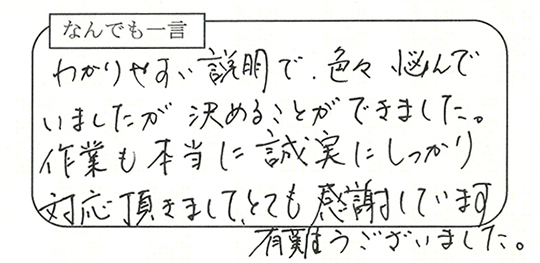 なんでも一言
わかりやすい説明で、色々悩んで
いましたが決めることができました。
作業も本当に誠実にしっかり
対応頂きまして、とても感謝しています
有難うございました。